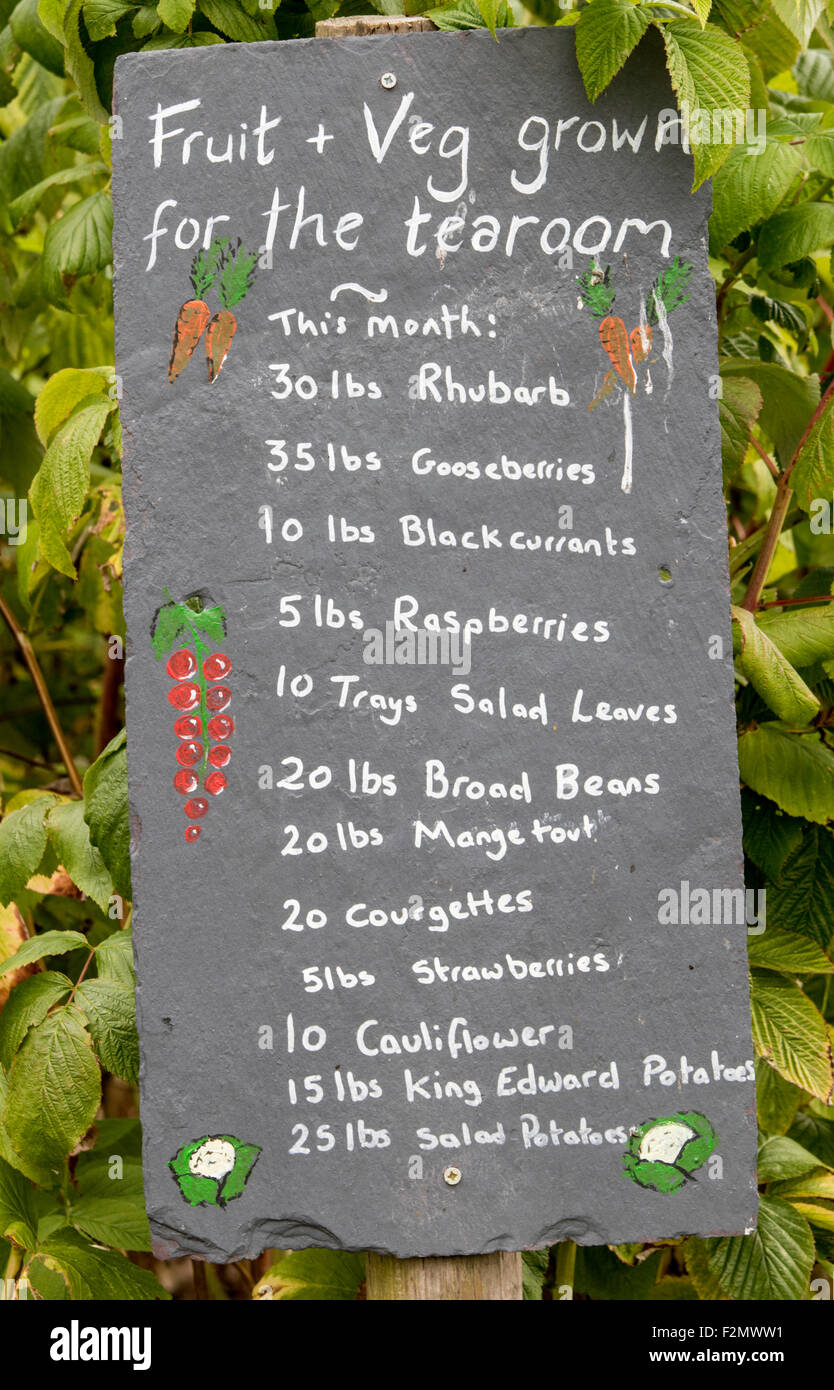 Fruit + Veg grown
for the tearoom
This month:
30 lbs Rhubarb
35 lbs Gooseberries
10 lbs Blackcurrants
5 lbs Raspberries
10 Trays Salad Leaves
20 lbs Broad Beans
20 lbs Mangetout
20 Courgettes
5lbs Strawberries
10 Cauliflower
15 lbs King Edward Potatoes
25 lbs Salad Potatoes
alamy
alamy stock photo
F2MWW1
www.alamy.com